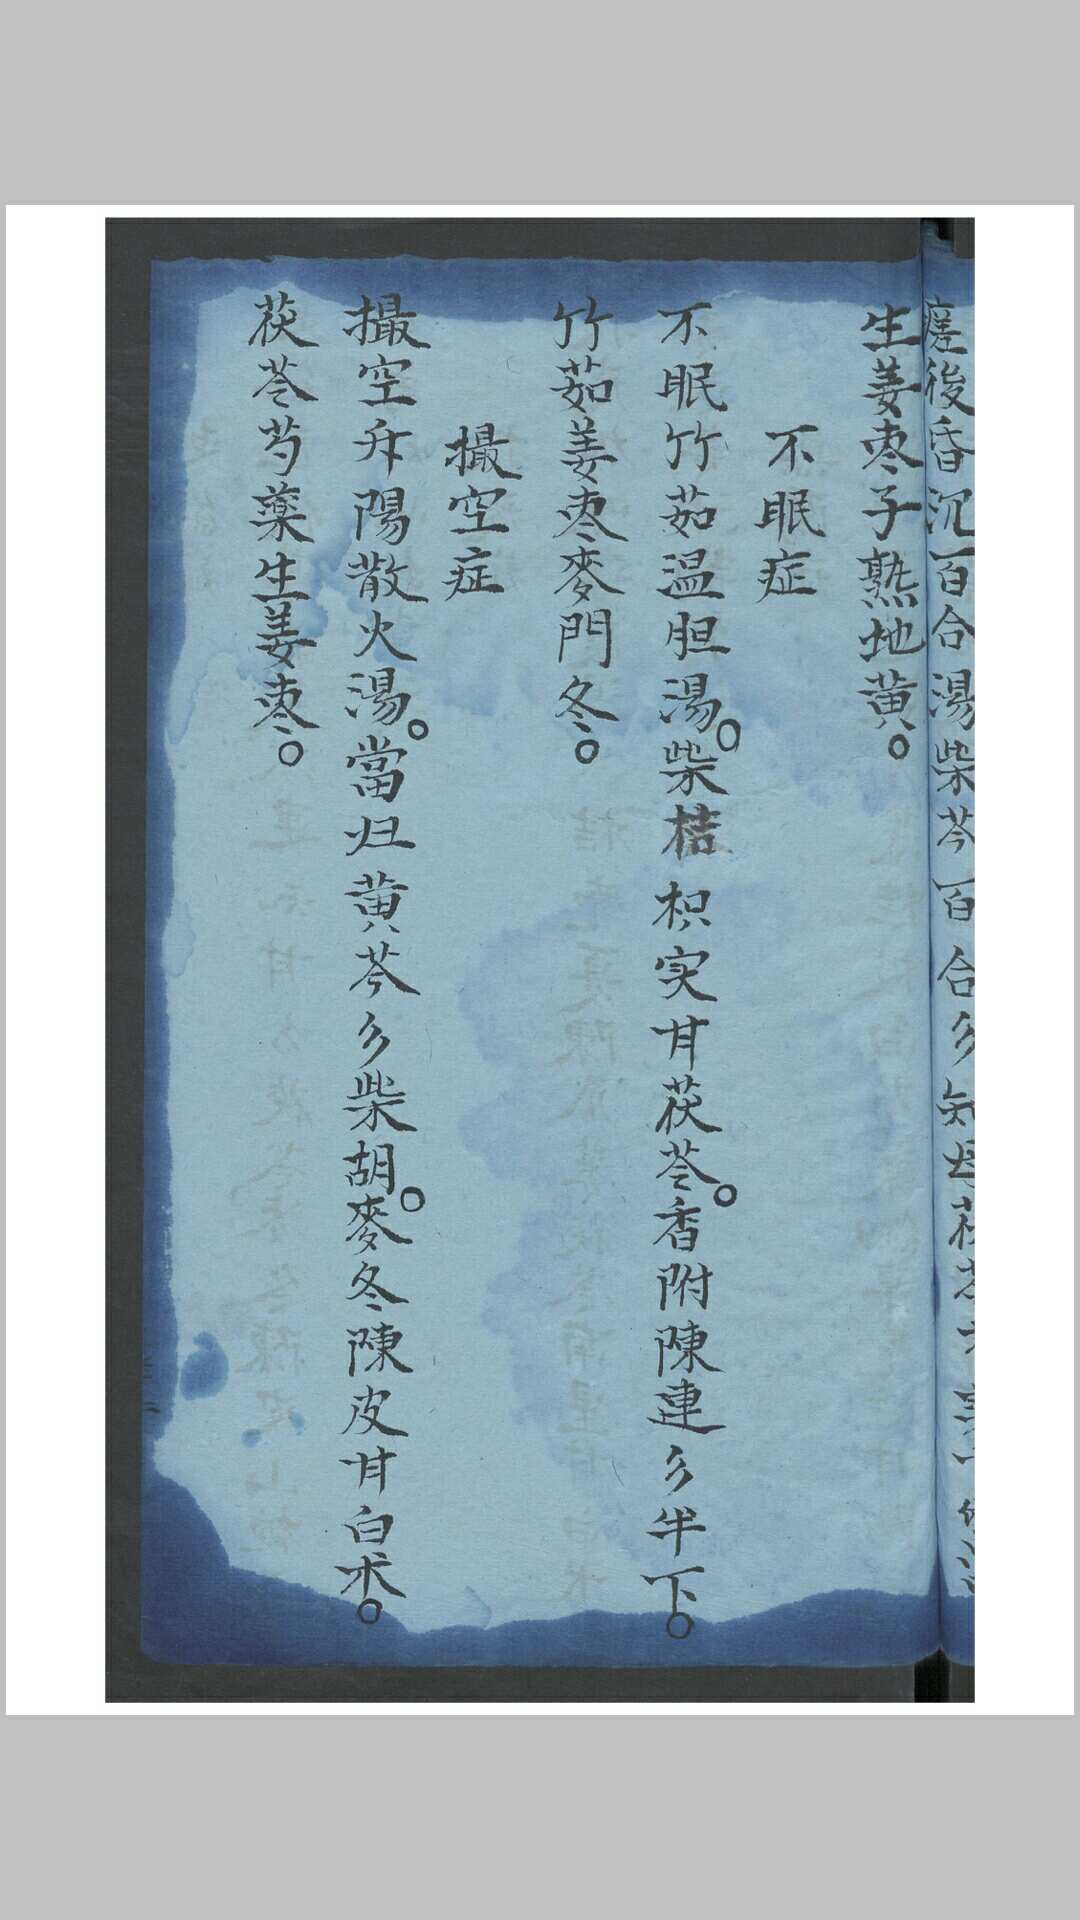 後昏沉百合湯柴芩百合彡知母茯
生姜枣子熟地黄。
不眠症
不眠竹茹温胆湯。柴桔枳实甘茯苓。香附陳連彡半下。
竹茹姜枣麥門冬。
撮空症
撮空升陽散火湯。當归黄芩彡柴胡。麥冬陳皮甘白术。
茯苓芍薬生姜枣。